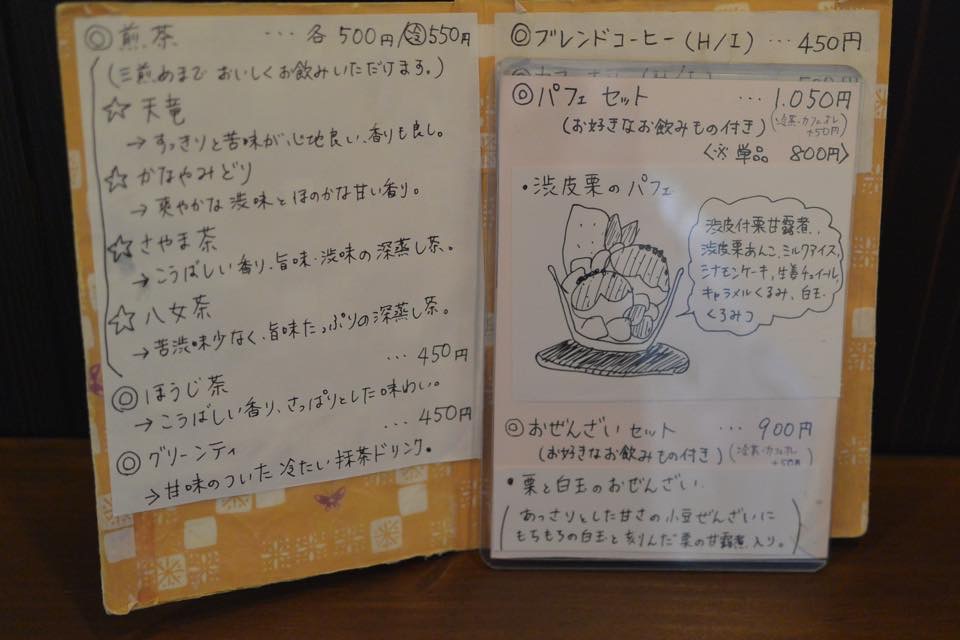 ◎煎茶 … 各500円/冷550円
(三煎めまでおいしくお飲みいただけます。)
☆天竜
→すっきりと苦味が心地良い、香りも良し。
☆かなやみどり
→爽やかな渋味とほのかな甘い香り。
☆さやま茶
→こうばしい香り、旨味・渋味の深蒸し茶。
☆八女茶
→苦渋味少なく、旨味たっぷりの深蒸し茶。
… 450円
◎ほうじ茶
→こうばしい香り、さっぱりとした味わい。
… 450円
◎グリーンティ
→甘味のついた冷たい抹茶ドリンク。
◎ブレンドコーヒー(H/I) … 450円
(H/I)
◎パフェセット … 1.050円
(お好きなお飲みもの付き)(冷茶・カフェオレ
+50円)
〈※単品 800円〉
・渋皮栗のパフェ
渋皮付栗甘露煮、
渋皮栗あんこ、ミルクアイス、
シナモンケーキ、生姜チュイール、
キャラメルくるみ、白玉、
くるみつ
◎おぜんざいセット … 900円
(お好きなお飲みもの付き)(冷茶・カフェオレ
+50円)
・栗と白玉のおぜんざい
(あっさりとした甘さの小豆ぜんざいに
もちもちの白玉と刻んだ栗の甘露煮入り。)